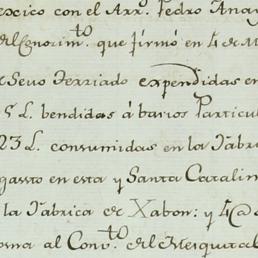 exico con el Arr.º Pedro Anay
del Conocim.to que firmó en 4 de M
e Sevo Derriado expendidas en
5 L. bendidas á barios Particul
23 L. consumidas en la Fabri
gasto en esta y Santa Catalin
la Fabrica de Xabon: y 4@
orma al Conv.to del Mesquital